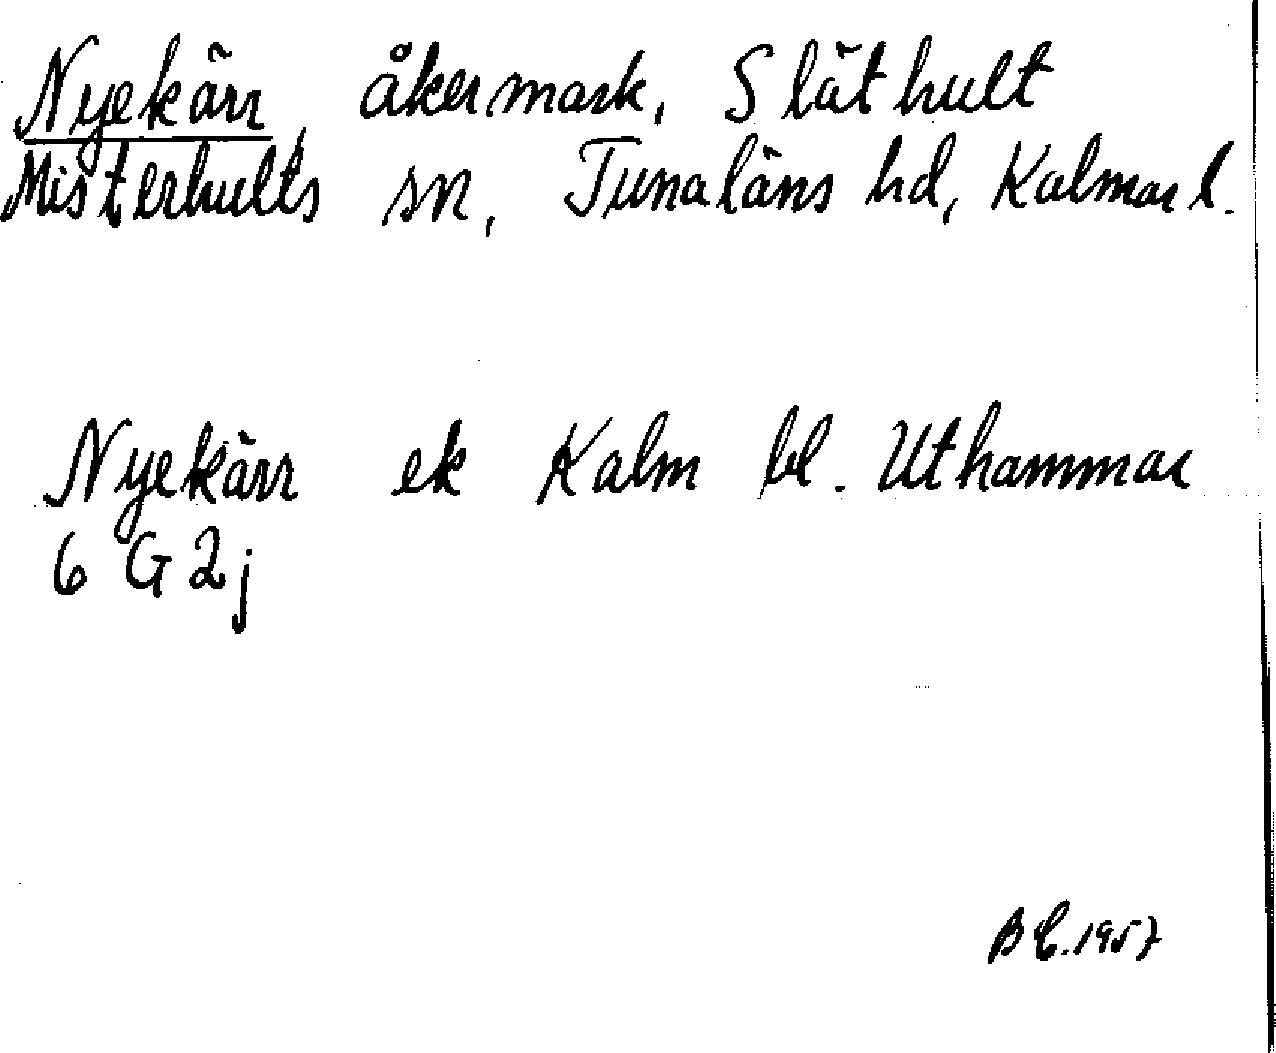 Nyekärr, åkermark, Släthult
Misterhults sn, Tunaläns hd, Kalmar l.
Nyekärr ek Kalm bl. Uthammar
6 G 2j
B C. 1957